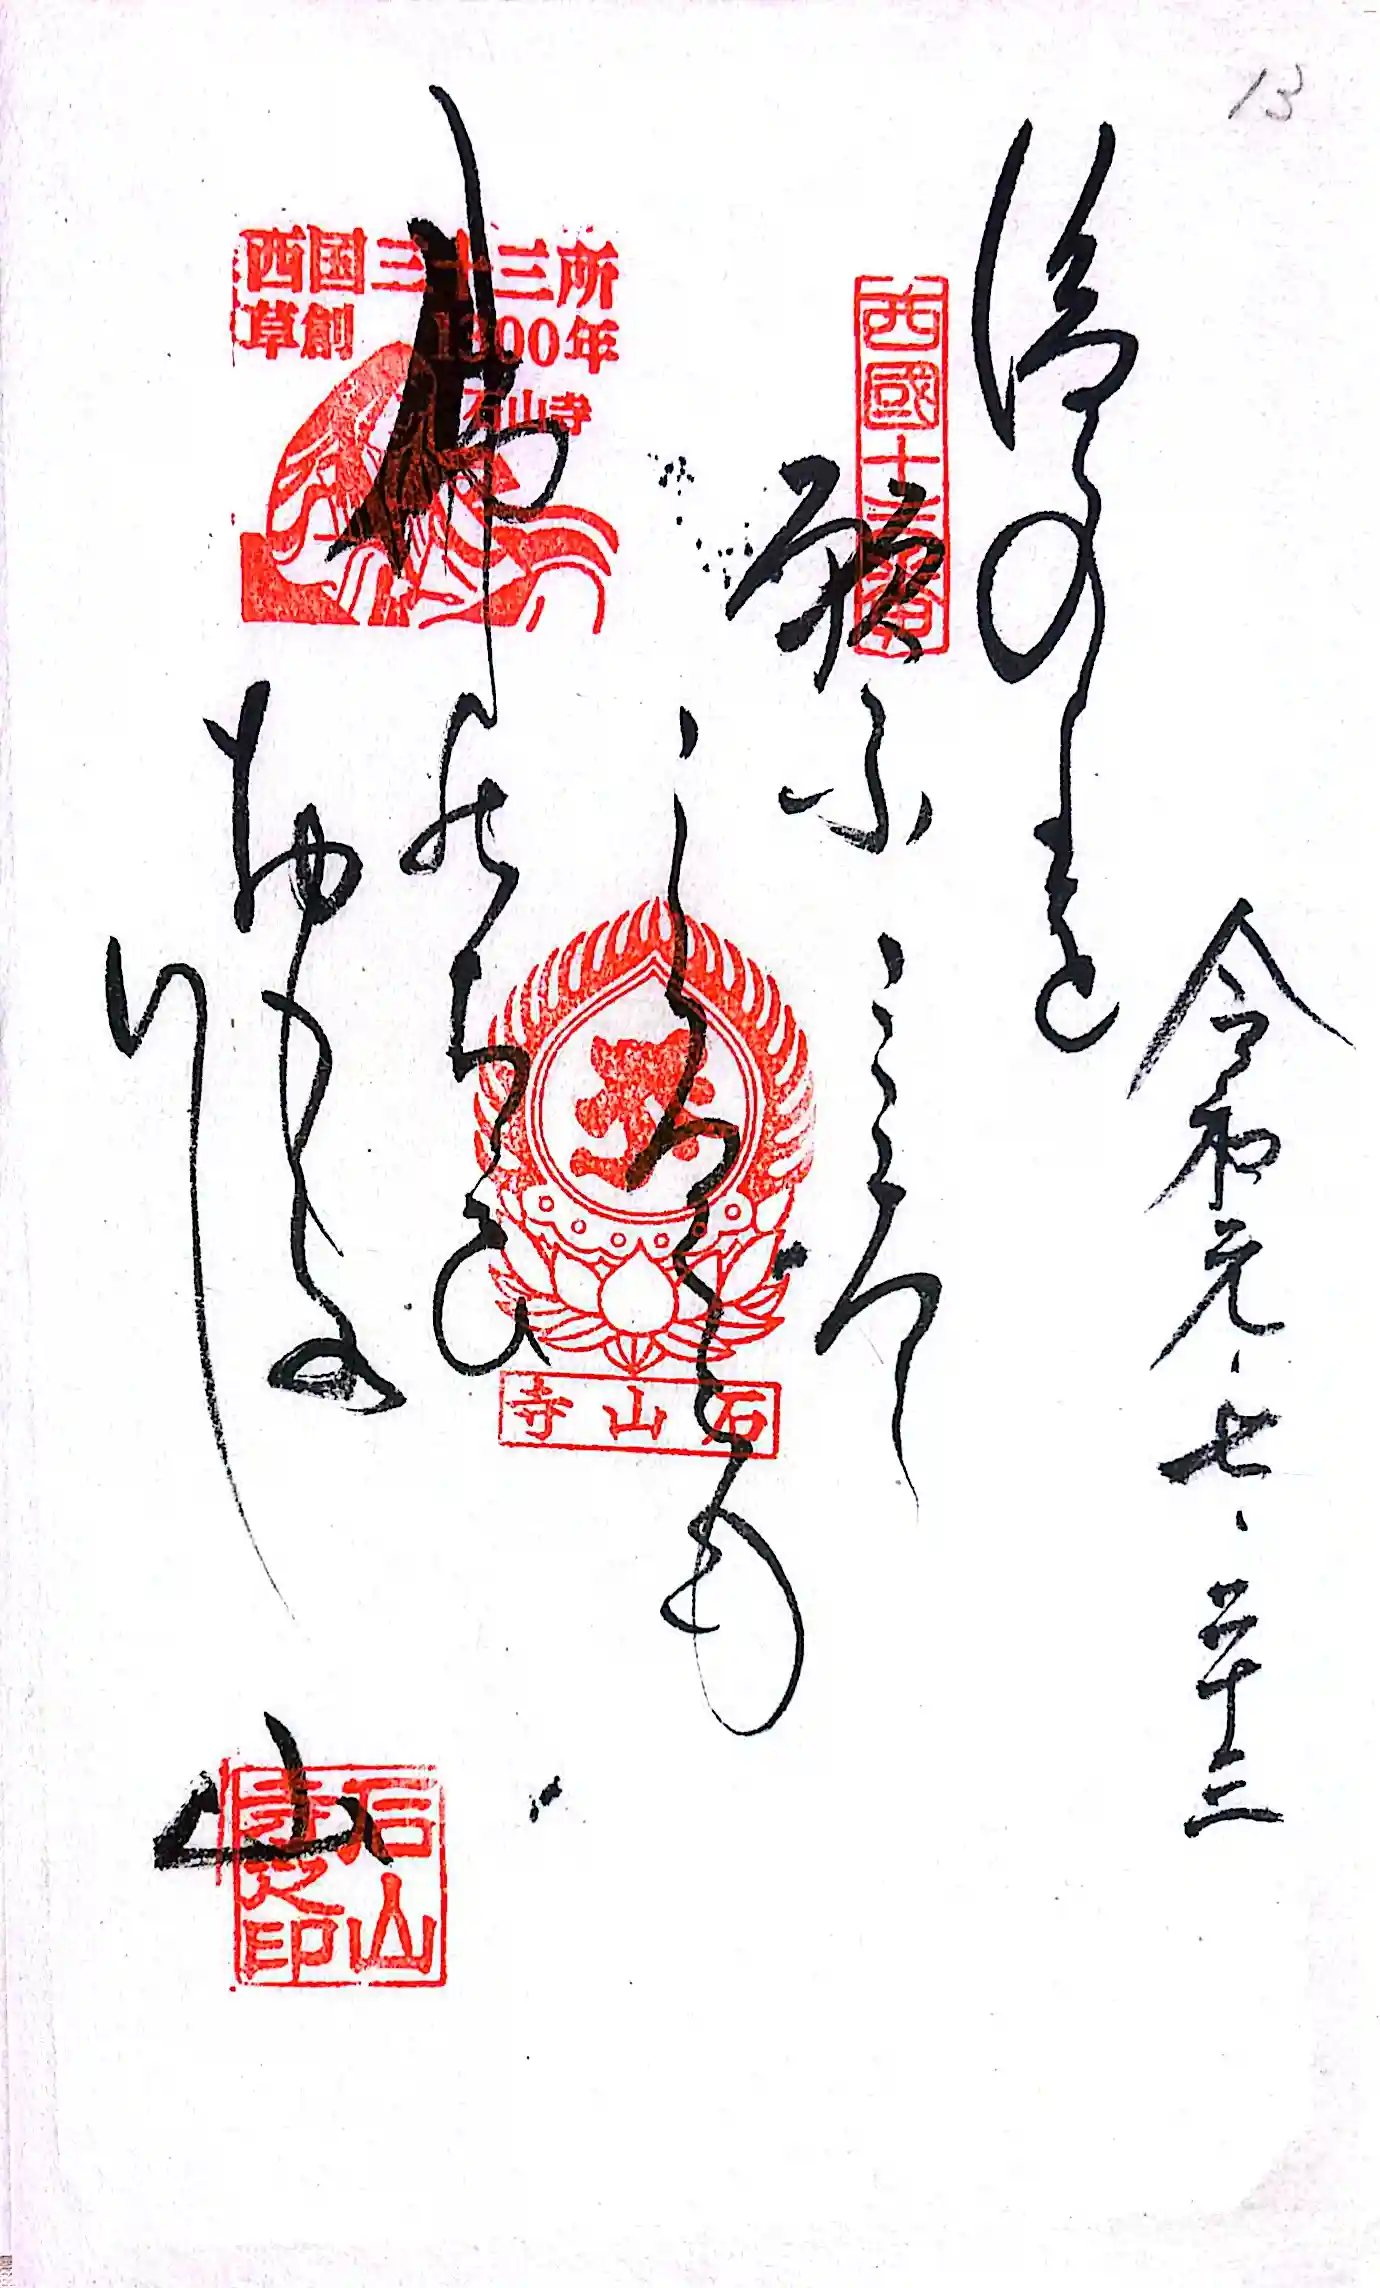 13
令和元・七・二十三
後のよを
願ふこゝろ
かろくとも
佛のちかひ
おもき
いし
山
西國十三番
西国三十三所
草創 1300年
石山寺
石山寺
石山寺之印